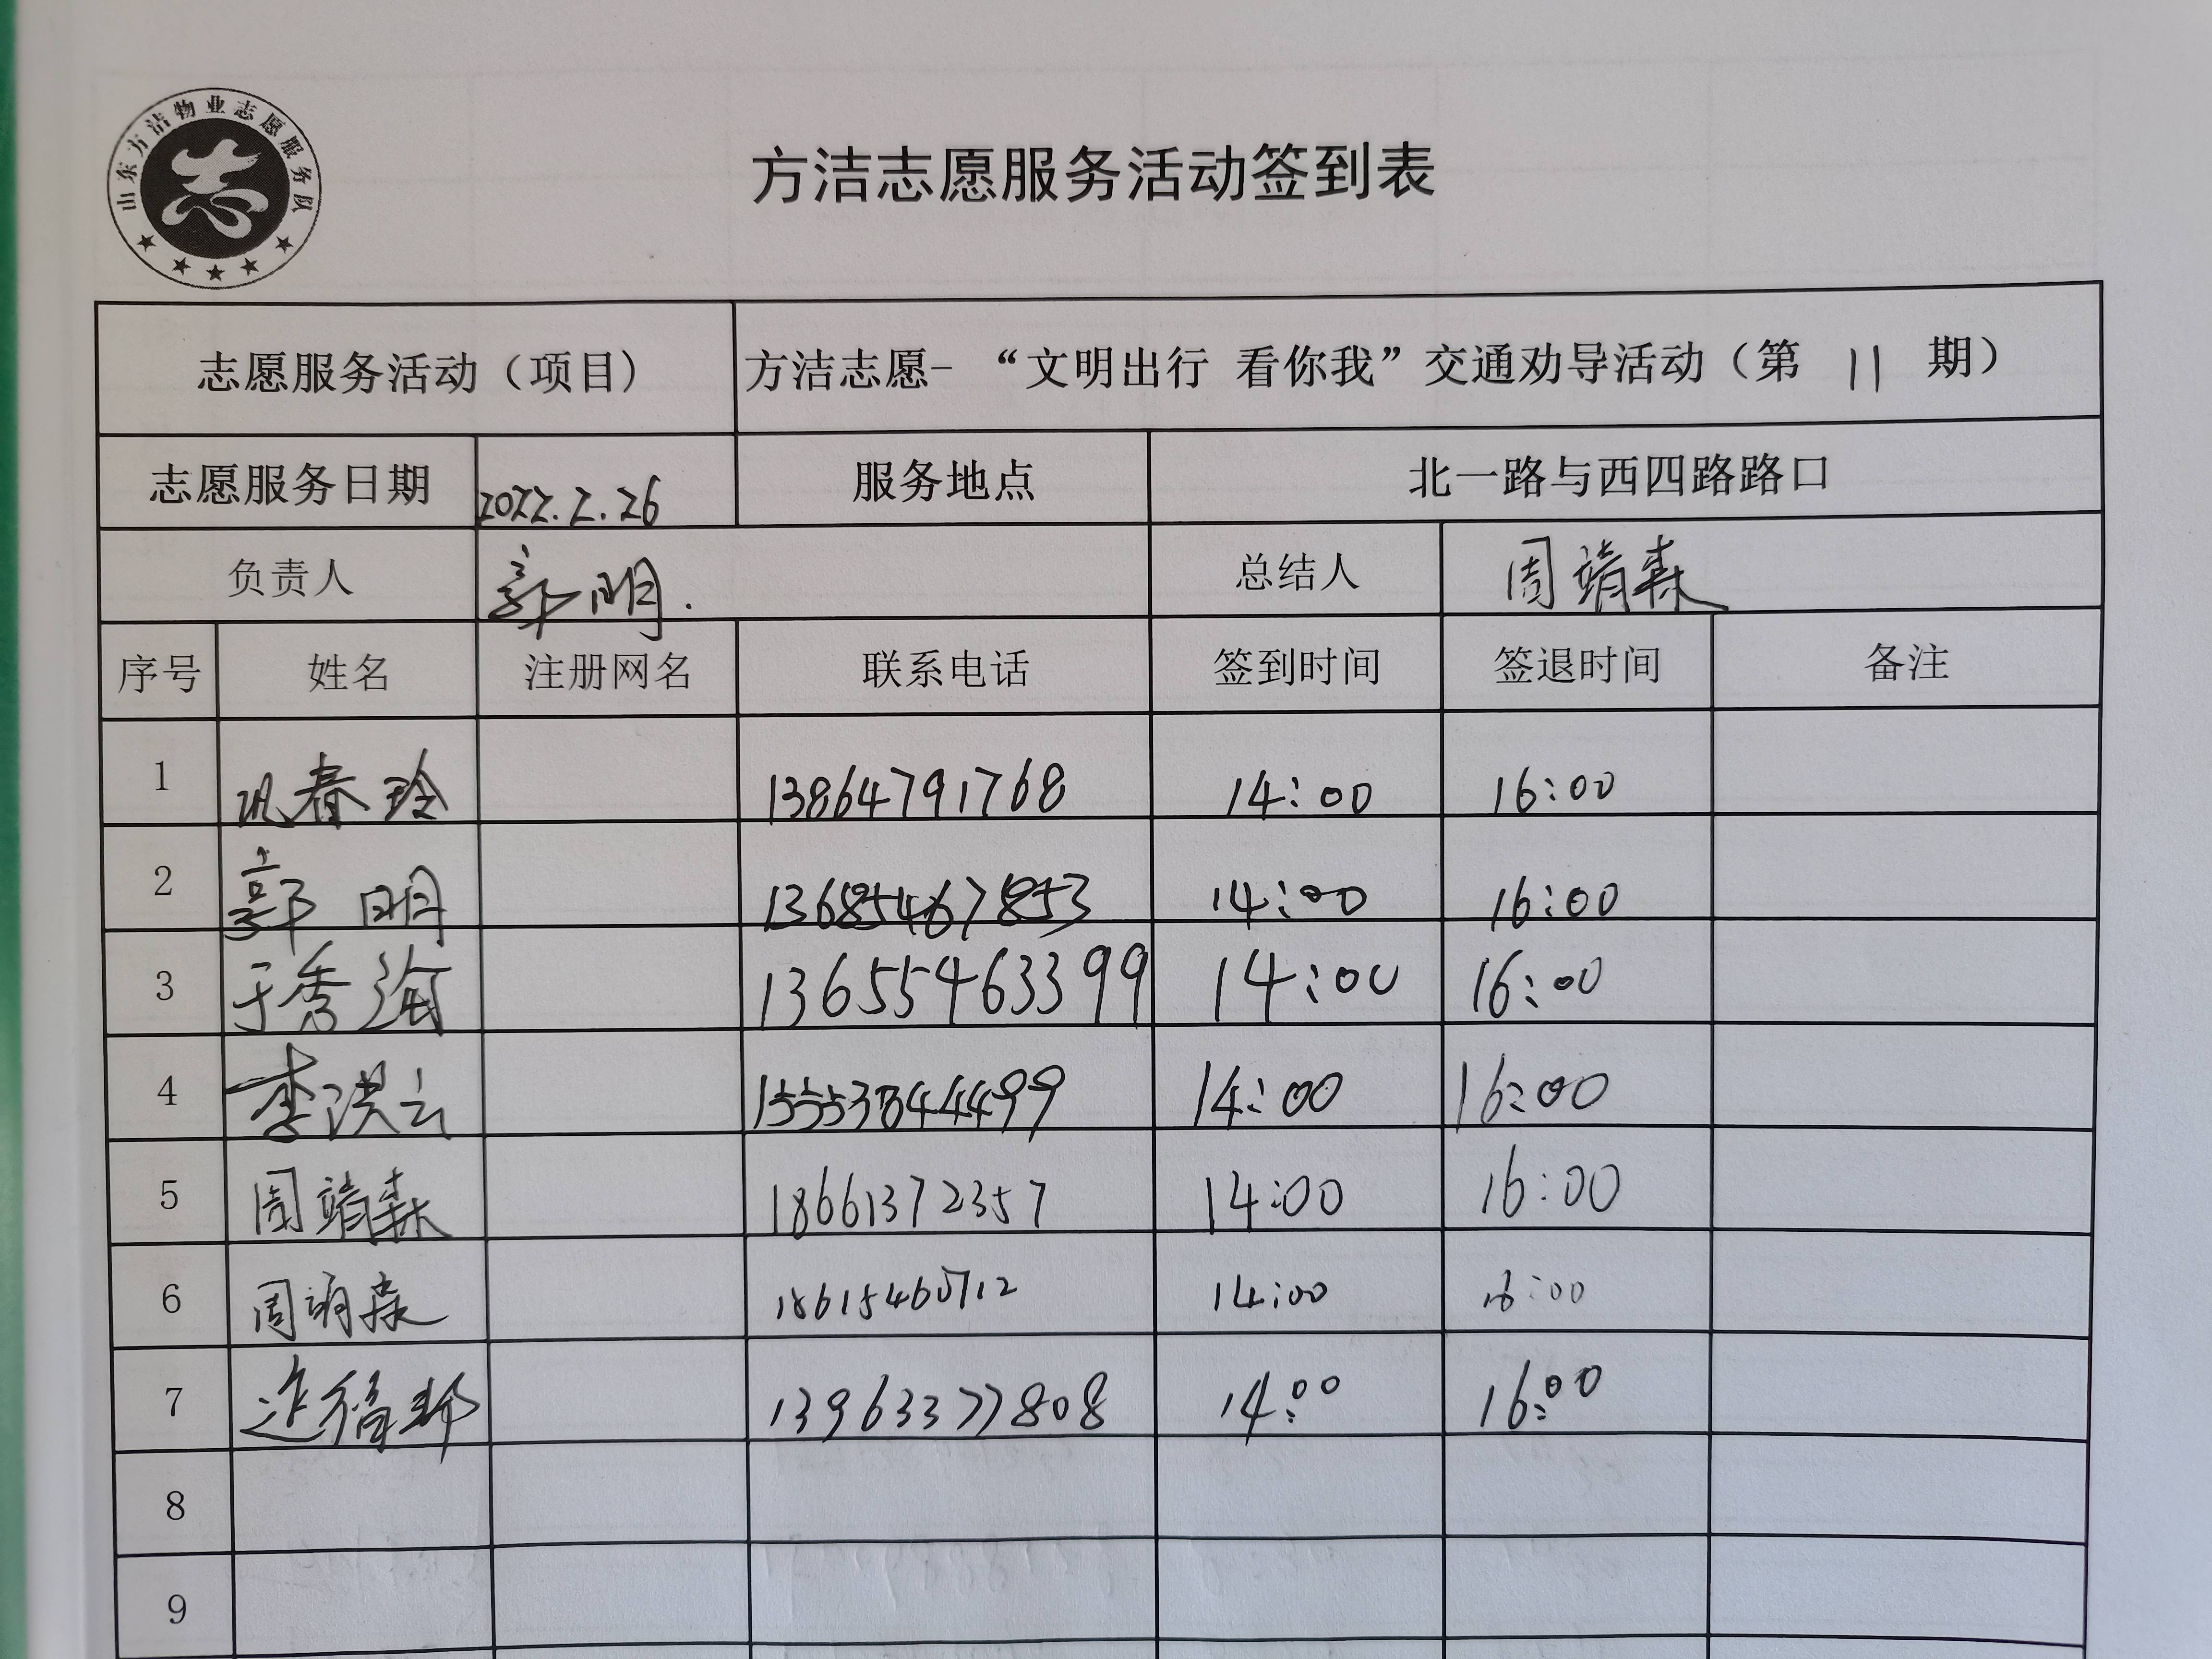 山东方洁物业志愿服务队
志
方洁志愿服务活动签到表
志愿服务活动（项目） 方洁志愿-“文明出行 看你我”交通劝导活动（第 11 期）
志愿服务日期 2022.2.26 服务地点 北一路与西四路路口
负责人 郭明. 总结人 周靖森
序号 姓名 注册网名 联系电话 签到时间 签退时间 备注
1 巩春玲 13864791768 14:00 16:00
2 郭明 13685467853 14:00 16:00
3 于秀海 13655463399 14:00 16:00
4 李洪云 14:00 16:00
5 周靖森 18661372357 14:00 16:00
6 周 森 14:00 16:00
7 13963377808 14:00 16:00
8
9